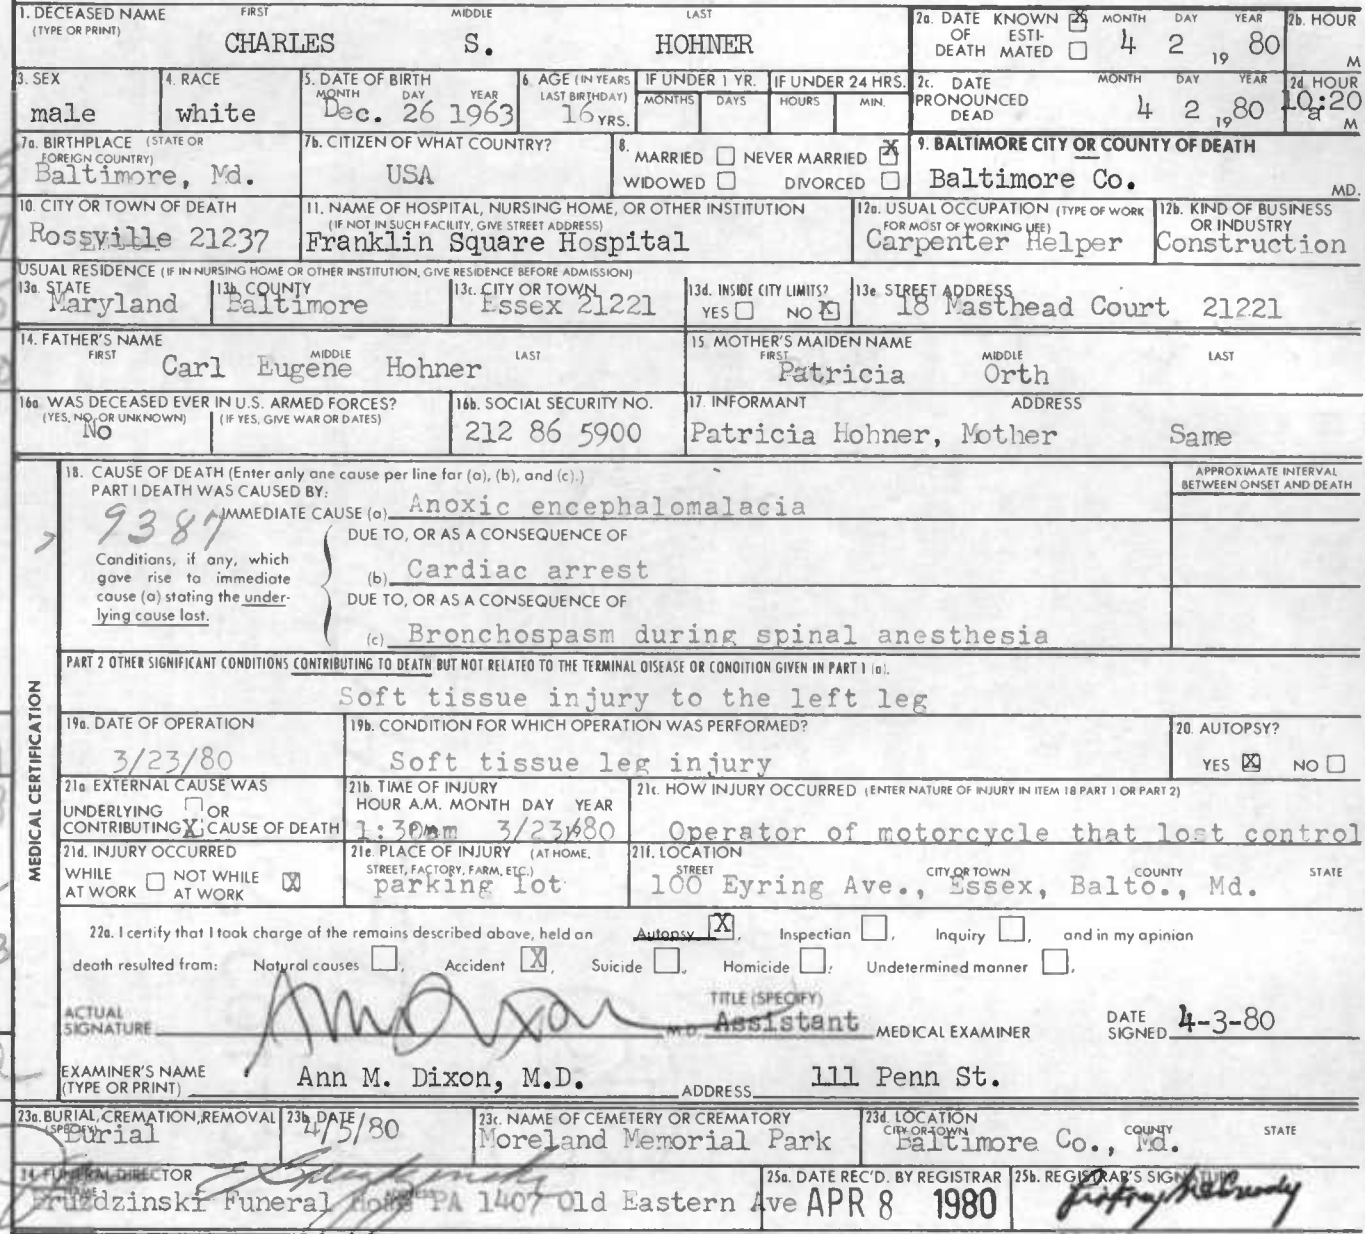 1. DECEASED NAME (TYPE OR PRINT) FIRST MIDDLE LAST
CHARLES S. HOHNER
2a. DATE OF DEATH KNOWN X ESTIMATED MONTH DAY YEAR 4 2 1980
2b. HOUR M
3. SEX male
4. RACE white
5. DATE OF BIRTH MONTH DAY YEAR Dec. 26 1963
6. AGE (IN YEARS LAST BIRTHDAY) 16 YRS.
IF UNDER 1 YR. MONTHS DAYS
IF UNDER 24 HRS. HOURS MIN.
2c. DATE PRONOUNCED DEAD MONTH DAY YEAR 4 2 1980
2d HOUR 10:20 a M
7a. BIRTHPLACE (STATE OR FOREIGN COUNTRY) Baltimore, Md.
7b. CITIZEN OF WHAT COUNTRY? USA
8. MARRIED NEVER MARRIED X
WIDOWED DIVORCED
9. BALTIMORE CITY OR COUNTY OF DEATH
Baltimore Co. MD.
10. CITY OR TOWN OF DEATH Rossville 21237
11. NAME OF HOSPITAL, NURSING HOME, OR OTHER INSTITUTION (IF NOT IN SUCH FACILITY, GIVE STREET ADDRESS) Franklin Square Hospital
12a. USUAL OCCUPATION (TYPE OF WORK FOR MOST OF WORKING LIFE) Carpenter Helper
12b. KIND OF BUSINESS OR INDUSTRY Construction
USUAL RESIDENCE (IF IN NURSING HOME OR OTHER INSTITUTION, GIVE RESIDENCE BEFORE ADMISSION)
13a. STATE Maryland
13b. COUNTY Baltimore
13c. CITY OR TOWN Essex 21221
13d. INSIDE CITY LIMITS? YES NO X
13e. STREET ADDRESS 18 Masthead Court 21221
14. FATHER'S NAME FIRST MIDDLE LAST
Carl Eugene Hohner
15. MOTHER'S MAIDEN NAME FIRST MIDDLE LAST
Patricia Orth
16a. WAS DECEASED EVER IN U.S. ARMED FORCES? (YES, NO, OR UNKNOWN) (IF YES, GIVE WAR OR DATES) No
16b. SOCIAL SECURITY NO. 212 86 5900
17. INFORMANT ADDRESS
Patricia Hohner, Mother Same
MEDICAL CERTIFICATION
18. CAUSE OF DEATH (Enter only one cause per line for (a), (b), and (c).)
APPROXIMATE INTERVAL BETWEEN ONSET AND DEATH
PART I DEATH WAS CAUSED BY:
9387
IMMEDIATE CAUSE (a) Anoxic encephalomalacia
DUE TO, OR AS A CONSEQUENCE OF
Conditions, if any, which gave rise to immediate cause (a) stating the underlying cause last.
(b) Cardiac arrest
DUE TO, OR AS A CONSEQUENCE OF
(c) Bronchospasm during spinal anesthesia
PART 2 OTHER SIGNIFICANT CONDITIONS CONTRIBUTING TO DEATH BUT NOT RELATED TO THE TERMINAL DISEASE OR CONDITION GIVEN IN PART 1 (a).
Soft tissue injury to the left leg
19a. DATE OF OPERATION 3/23/80
19b. CONDITION FOR WHICH OPERATION WAS PERFORMED? Soft tissue leg injury
20. AUTOPSY? YES X NO
21a EXTERNAL CAUSE WAS UNDERLYING OR CONTRIBUTING X CAUSE OF DEATH
21b. TIME OF INJURY HOUR A.M. MONTH DAY YEAR 1:30 am 3/23/1980
21c. HOW INJURY OCCURRED (ENTER NATURE OF INJURY IN ITEM 18 PART 1 OR PART 2)
Operator of motorcycle that lost control
21d. INJURY OCCURRED WHILE AT WORK NOT WHILE AT WORK X
21e. PLACE OF INJURY (AT HOME, STREET, FACTORY, FARM, ETC.) parking lot
21f. LOCATION STREET CITY OR TOWN COUNTY STATE
100 Eyring Ave., Essex, Balto., Md.
22a. I certify that I took charge of the remains described above, held an Autopsy X, Inspection , Inquiry , and in my opinion
death resulted from: Natural causes , Accident X, Suicide , Homicide , Undetermined manner .
ACTUAL SIGNATURE M.D. TITLE (SPECIFY) Assistant MEDICAL EXAMINER DATE SIGNED 4-3-80
EXAMINER'S NAME (TYPE OR PRINT) Ann M. Dixon, M.D. ADDRESS 111 Penn St.
23a. BURIAL, CREMATION, REMOVAL (SPECIFY) Burial
23b. DATE 4/5/80
23c. NAME OF CEMETERY OR CREMATORY Moreland Memorial Park
23d. LOCATION CITY OR TOWN COUNTY STATE Baltimore Co., Md.
24. FUNERAL DIRECTOR
Bruzdzinski Funeral Home PA 1407 Old Eastern Ave
25a. DATE REC'D. BY REGISTRAR APR 8 1980
25b. REGISTRAR'S SIGNATURE